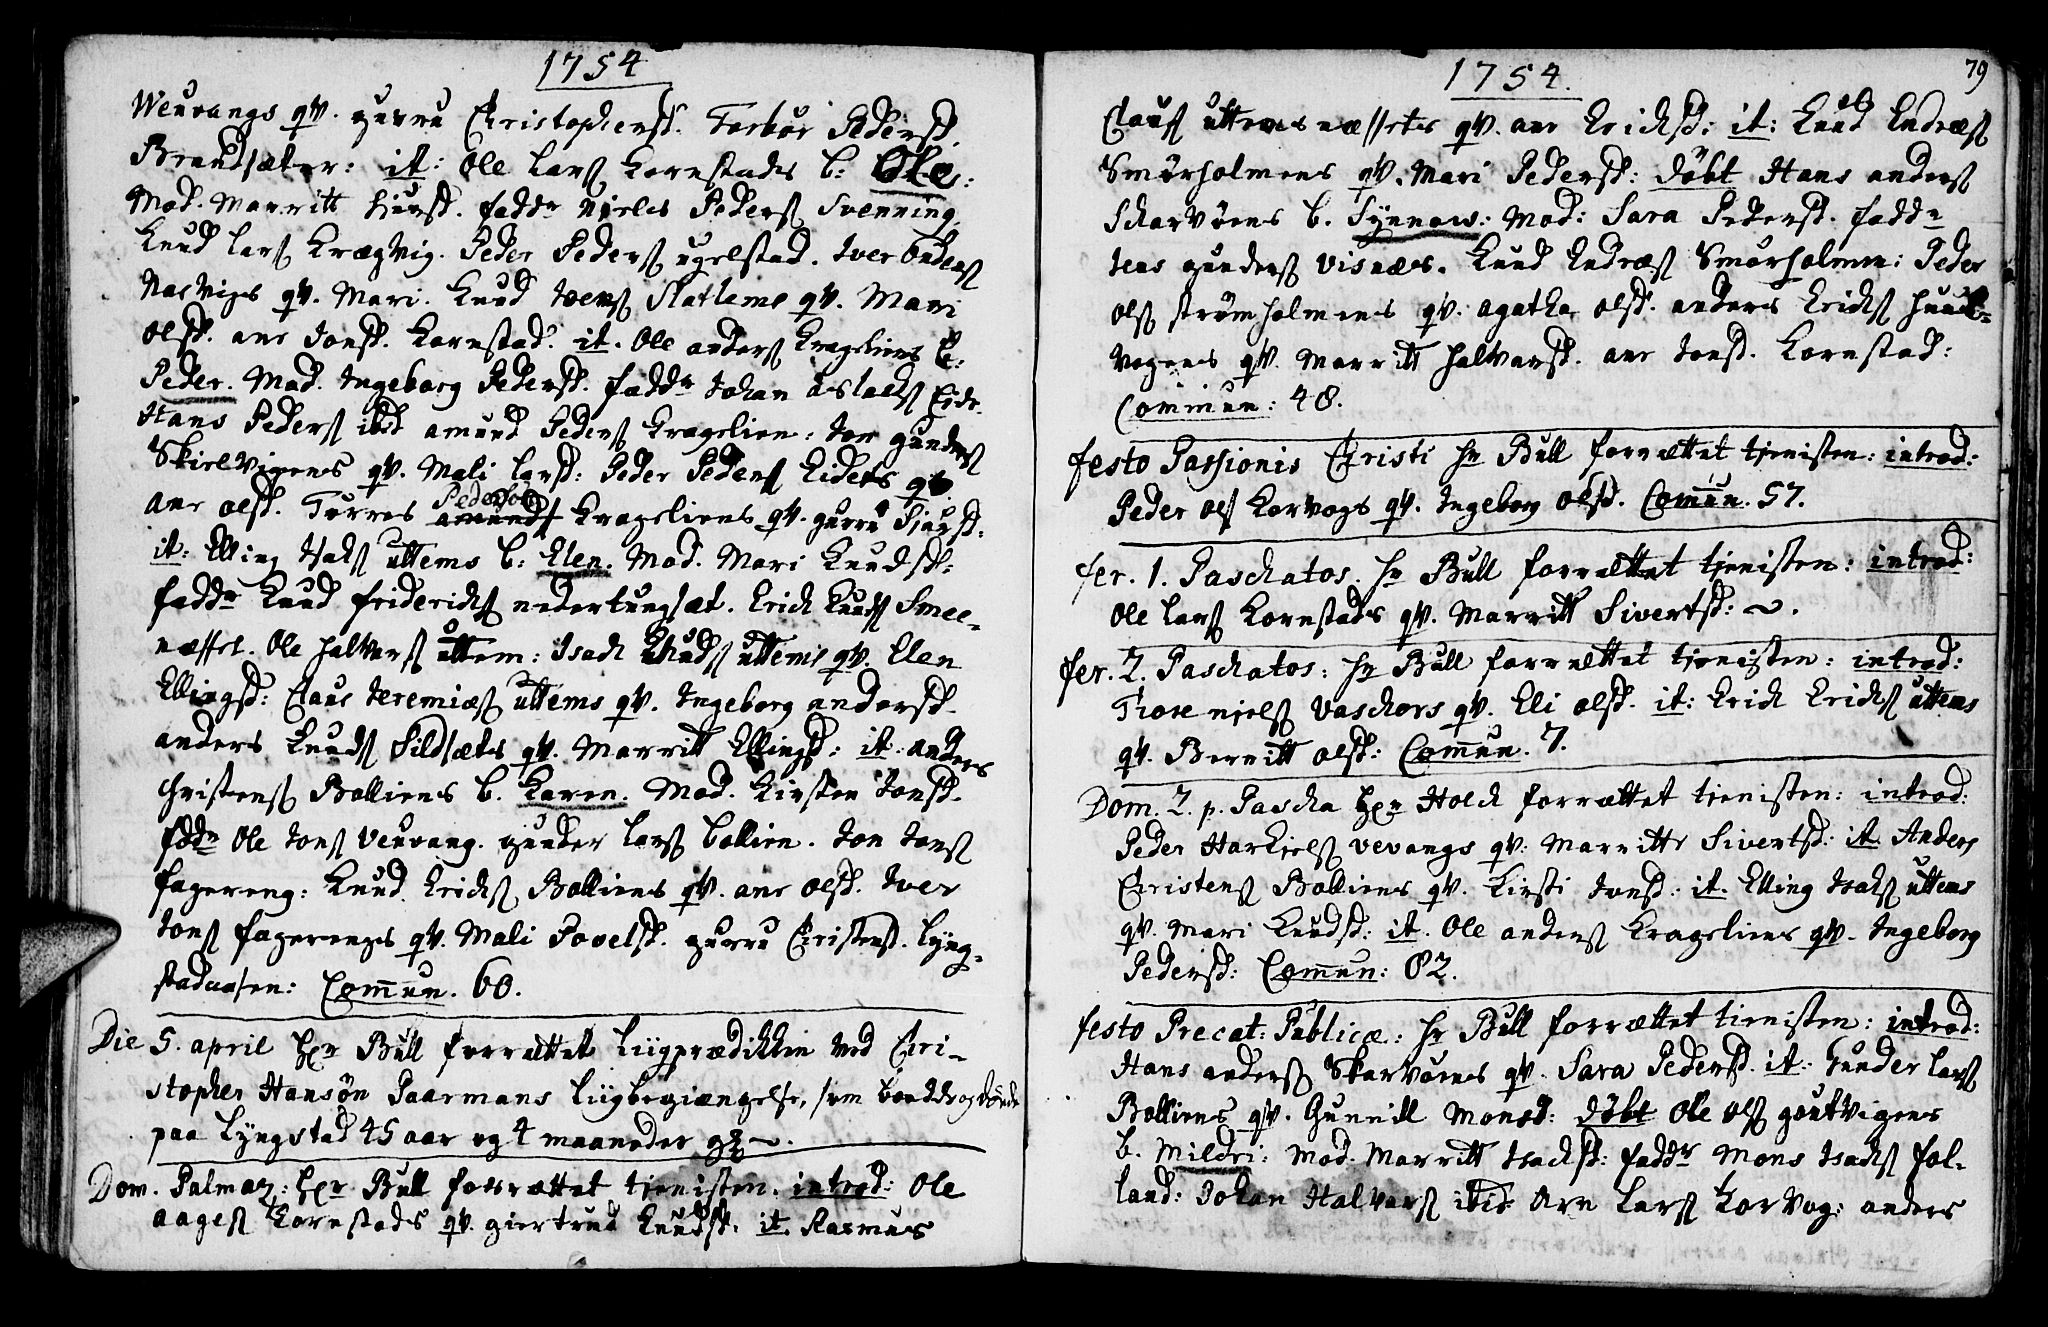 1754
Weuvangs qv. gurru Christophersd. Torbor Pedersd.
Brandsæter: it: Ole Lars Kornstads b: Ole:
Mod. Marritt Siursd. fadd.r Niels Peders Svenning,
Knud Lars Krægvig. Peder Peders ugelstad. Iver Enders
Nasvigs qv. Mari. Knud Joens Slatlems qv. Mari
Olsd. ane Jonsd. Kornstad. it. Ole anders Krageliens b:
Peder. Mod. Ingeborg Pedersd. fadd.r Johan aslacks Eide.
Hans Peders ibid amund Peders Kragelien: Jon gunders
Skielvigens qv. Mali Larsd: Peder Peders Eidets qv.
ane olsd. Torres Pedersøn Krageliens qv. gurru Siursd:
it: Elling Isaks uttems b: Elen. Mod. Mari Knudsd:
fadd.r Knud friderichs nedertungsæt. Erich Knuds Smee-
næsset. Ole Halvors uttem: Isach Knuds uttems qv. Elen
Ellingsd: Claus Jeremiæs uttems qv. Ingeborg andersd.
anders Knuds Sildsæts qv. Marritt Ellingsd: it: anders
Christens Bolliens b. Karen. Mod. Kirsten Jonsd.
fdd.r Ole Jons Veuvang. gunder Lars bollien. Jon Jons
fagereng: Knud Erichs Bolliens qv. ane olsd. Iver
Jons fagerengs qv. Mali Povelsd. gurru Christensd. Lyng-
stadaasen: Commun. 60.
Die 5. april Her Bull forrættet Liigprædikken ved Chri-
stopher Hansøn Paarmans Liigbegiængelse, som boede og døde
paa Lyngstad 45 aar og 4 maaneder
Dom. Palmar: Her Bull forrættet tienisten. introd: Ole
aages Kornstads qv. giertrud Knudsd. it Rasmus
1754. 79
Claus utternæssets qv. ane Erichsd: it: Knud Endræs
Smørholmens qv. Mari Pedersd: döbt Hans anders
Scharvöens b. Synnow: Mod: Sara Pedersd. fadd.r
Jens gunders Visnæs. Knud Endræs Smørholmen: Peder
ols strømholmens qv. agathe olsd. anders Erichs
vogens qv. Marritt Halvorsd. ane Jonsd. Kornstad:
Commun: 48.
festo Passionis Christi Hr Bull forrættet tienisten: introd:
Peder ols Korvogs qv. Ingeborg olsd. Commun. 57.
fer. 1. Paschatos. Hr Bull forrættet tienisten: introd:
Ole Lars Kornstads qv. Marritt Sivertsd:
fer. 2. Paschatos: Hr Bull forrættet tienisten: introd:
Thore niels Vaschors qv. Eli olsd. it: Erich Erichs uttems
qv. Bernitt olsd: Commun. 7.
Dom. 2. p. Pascha Her Holch forrættet tienisten: introd:
Peder Harkiels vevangs qv. Marritt Sivertsd: it Anders
Christens Bolliens qv. Kirsti Jonsd: it. Elling Isaks uttems
qv. Mari Knudsd: it. Ole anders Krageliens qv. Ingeborg
Pedersd: Commun: 82.
festo Precat: Publicæ: Hr Bull forrættet tienisten: introd:
Hans anders Skarvöens qv. Sara Pedersd. it: Gunder Lars
Bolliens qv. Gunnill Monsd: döbt Ole ols goutvigens
b. Mildri: Mod. Marritt Isachsd: fadd.r Mons Isachs fol-
land: Johan Halvors ibid: Arn Lars Korvog: anders